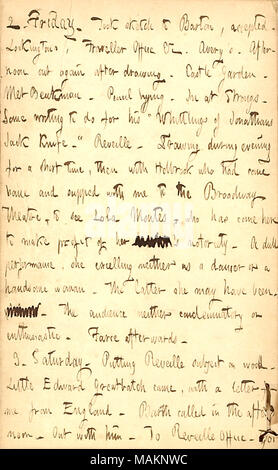 2. Friday. Took sketch to Barton, accepted.
Lockingtons, Traveller Office &c. Avery's. After-
noon out again after drawing. Castle Garden.
Met Beckman. Pencil trying. In at Strongs.
Some writing to do for his "Whittlings of Jonathans
Jack Knife." Reveille. Drawing during evening
for a short time, then with Holbrook who had come
and supped with me to the Broadway
Theatre, to see Lola Montes, who has come here
to make profit of her notoriety. A dull
performance, she excelling neither as a dancer or a
handsome woman. The latter she may have been
The audience neither condemnatory or
enthusiastic. Farce afterwards.
3. Saturday. Putting Reveille subject on wood.
Little Edward Greatbatch came, with a letter
me from England. Barth called in the after
noon. Out with him. To Reveille Office. for
alamy
Image ID: MAKNWC
www.alamy.com